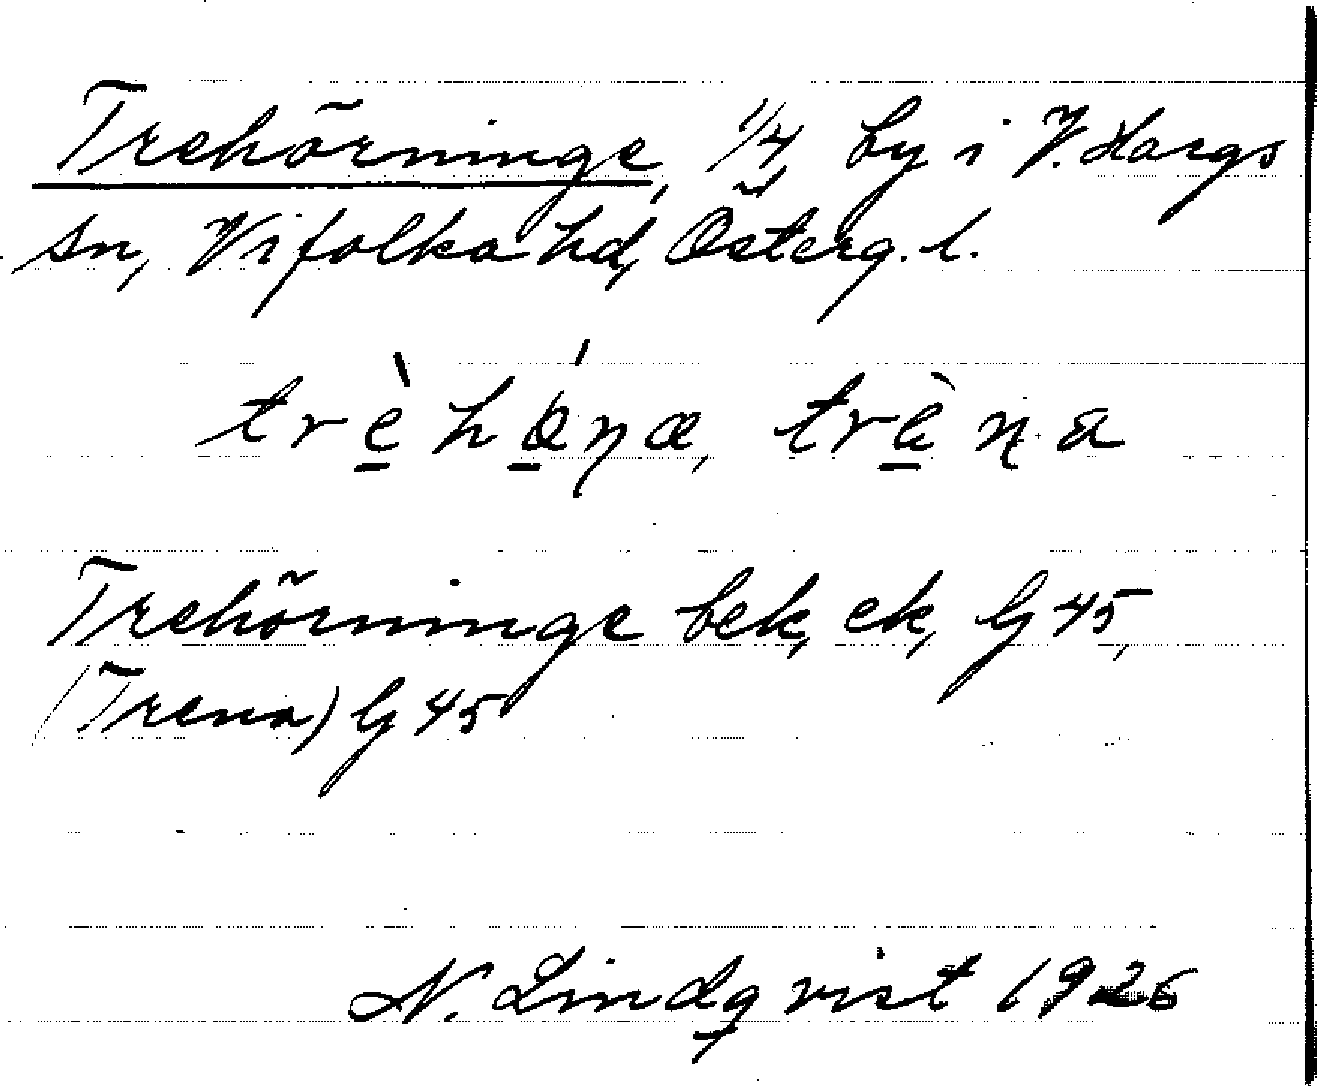 Trehörninge, 1/4 by i V. Hargs
sn, Vifolka hd, Österg. l.
trèhǿŋæ, trèŋa
Trehörninge bek, ek, G 45,
(Trena) G 45
N. Lindqvist 1926